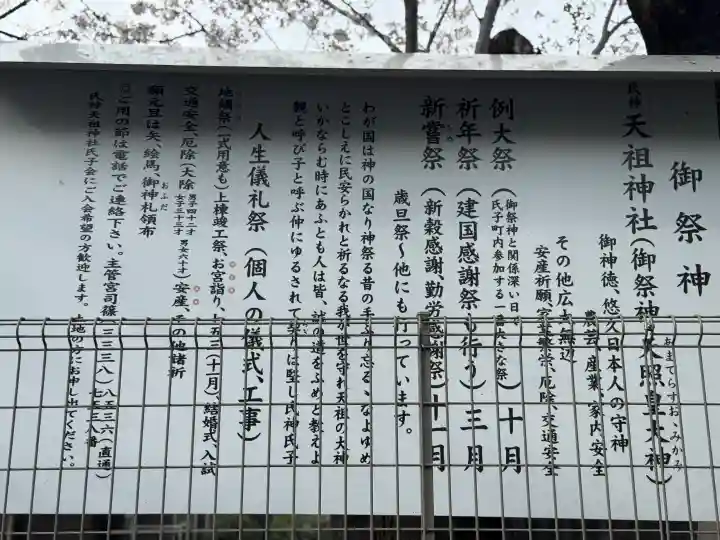 御祭神
氏神 天祖神社(御祭神 天照皇大神)
あまてらすおゝみかみ
御神徳、悠久日本人の守神
農芸、産業、家内安全
その他広大無辺
安産祈願、営業繁栄、厄除、交通安全
例大祭(御祭神と関係深い日で
氏子町内参加する一番大きな祭)十月
祈年祭(建国感謝祭も行う)三月
新嘗祭(新穀感謝、勤労感謝祭)十一月
歳旦祭〜他にも行っています。
わが国は神の国なり神祭る昔の手ぶり忘るゝなよゆめ
とこしえに民安らかれと祈るなる我が世を守れ天祖の大神
いかならむ時にあふとも人は皆、誠の道をふめと教えよ
親と呼び子と呼ぶ仲にゆるされて契りは堅し氏神氏子
人生儀礼祭(個人の儀式、工事)
地鎮祭(一式用意も)上棟竣工祭、お宮詣り、七五三(十一月)、結婚式、入試
交通安全、厄除(大除 男子四十二才 女子三十三才 男女六十才)安産、その他諸祈
願元旦は矢、絵馬、御神札領布
おふだ
◎ご用の節は電話でご連絡下さい。主管宮司篠 三三三八)八五三六(直通)
氏神天祖神社氏子会にご入会希望の方歓迎します。土地の方にお申し出てください。